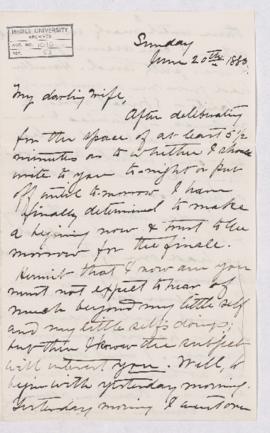 McGILL UNIVERSITY
ARCHIVES
ACC. NO. 1010
REF.
Sunday
June 20th 1880
My darling Wife,
After deliberating
for the space of at least 5½
minutes as to whether I should
write to you tonight or put
off until tomorrow I have
finally determined to make
a begining now & trust to the
morrow for the finale.
that I now are you
must not expect to hear of
much beyond my little self
and my little self's doings;
but then I know the subject
will interest you. Well, to
begin with yesterday morning.
Yesterday morning I went